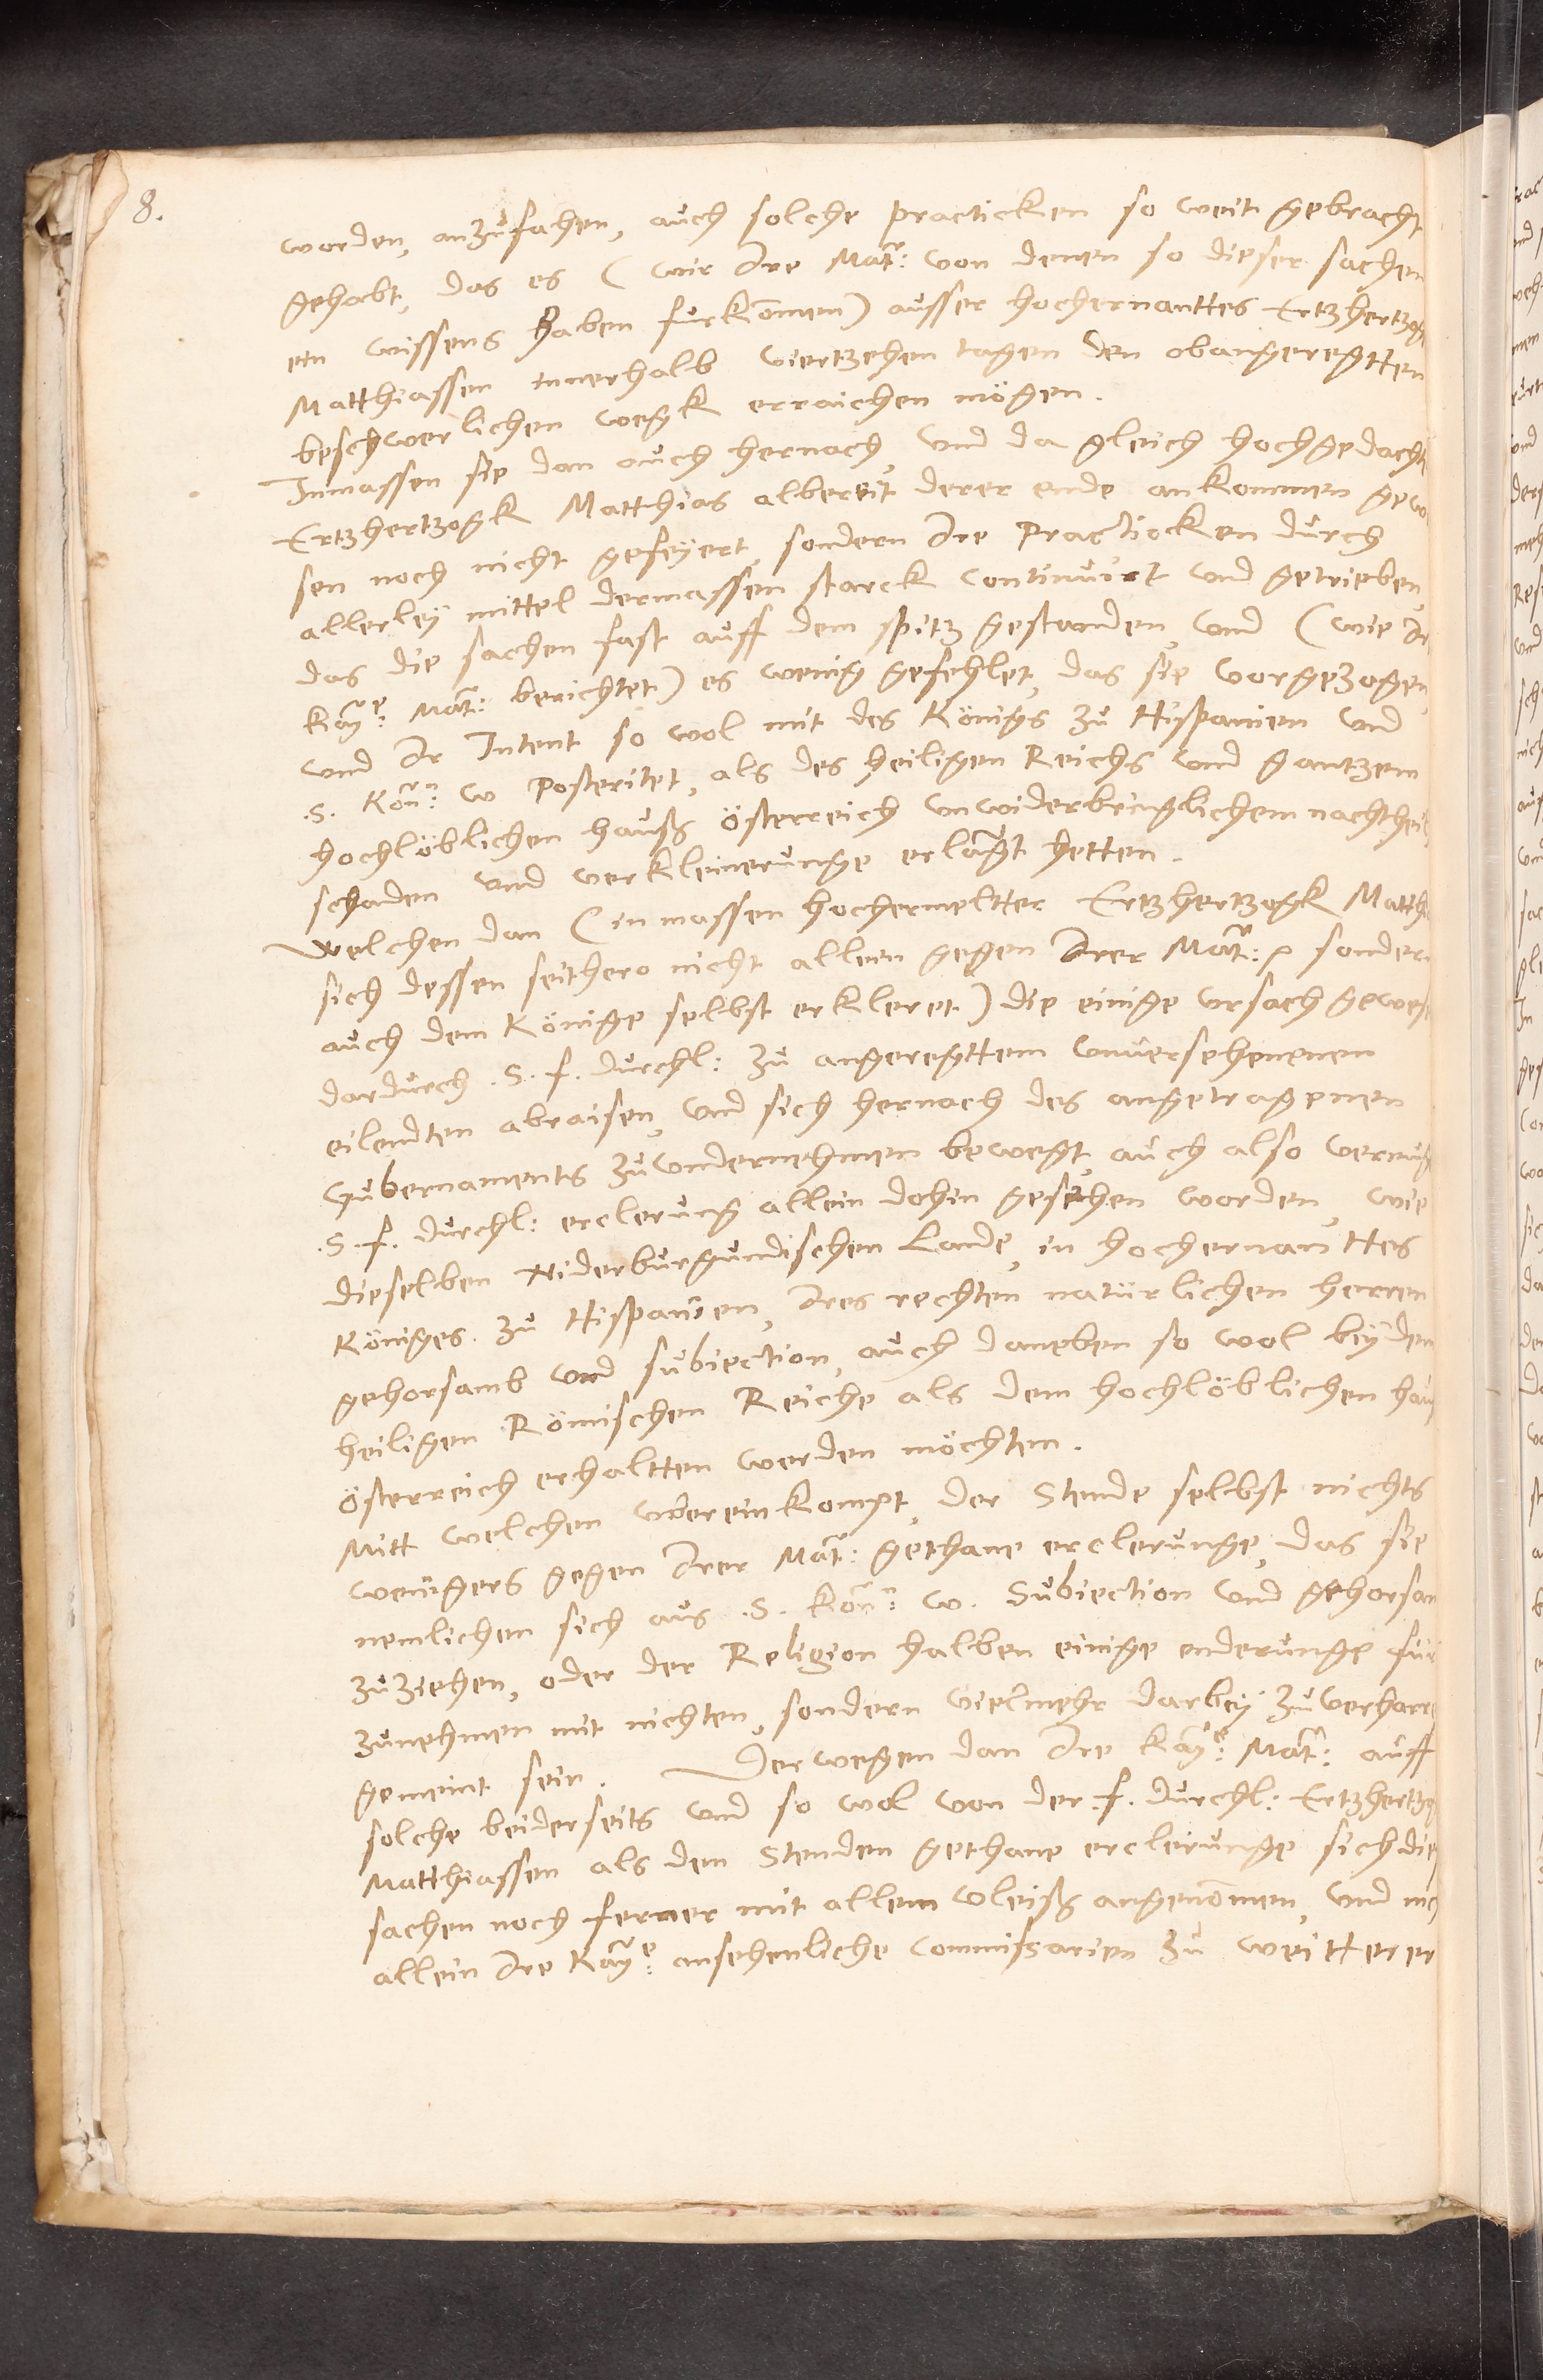 8.
worden, anzufahen, auch solche practicken so weit gebracht
gehabt, das es (wie Ire Mat: von denen so dieser sachen
ein wissens haben furkommen) ausser hochernanttes Ertzhertzog
Matthiassen innerhalb viertzehen tagen den obangeregtten
beschwerlichen wegk erraichen mögen.
Inmassen sie dan auch hernach, und da gleich hochgedacht
Ertzhertzogk Matthias albereit derer ende ankommen gewe
sen noch nicht gefeyert, sondern Ire Practicken durch
allerley mittel dermassen starck continuirt und getrieben,
das die sachen fast auff dem spitz gestanden, und (wie Ir
Kaye: Mat: berichtet) es wenig gefehlet, das sie vorgezogen,
und Ir Intent so wol mit des Königs zu Hispanien und
.S. Kön: w Posteritet, als des heiligen Reichs und gantzem
hochlöblichen hauß Österreich unwiderbringlichem nachtheil
schaden und verkleinerunge erlangt hetten.
Welchen dan (in massen hochermeltter Ertzhertzogk Matth
sich dessen seithero nicht allein gegen Irer Mat: sondern
auch dem Könige selbst erkleret) die einige ursach gewes
dardurch .S. f. durchl: zu angeregttem unversehenenen
eilendten abraisen, und sich hernach des angetragenen
Gubernaments zuundernehmen bewegt, auch also vermug
.S. f. durchl: erclerung allein dohin gesehen worden, wie
dieselben Niderburgundischen Lande, in hochernanttes
Königes zu Hispanien, Ires rechten natürlichen herren
gehorsamb und subiection, auch daneben so wol bey dem
heiligen Römischen Reiche als dem hochlöblichen hauß
Österreich erhaltten werden möchten.
Mitt welchen ubereinkompt, der Stende selbst nichts
wenigers gegen Irer Mat: gethane erclerunge, das sie
nemlichen sich aus .S. Kön: w. Subiection und gehorsam
zuziehen, oder der Religion halben einige enderunge für
zunehmen mit nichten, sondern vielmehr darbey zuverharre
gemeint sein. Derwegen dan Ire Kaye: Mat: auff
solche beiderseits und so wol von der .f. durchl: Ertzhertzog
Matthiassen als den Stenden gethane erclerunge sich die
sachen noch ferner mit allem vleiß angenommen, und nich
allein Ire Kaye: ansehenliche Commissarien zu weitterer